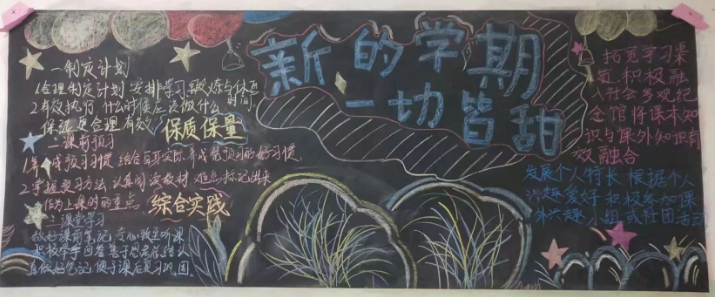 新的学期
一切皆甜
一制定计划
1合理制定计划 安排学习 锻炼与休息
时间.
2有效执行 什么时候应该做什么
保证更合理有效
保质保量
二课前预习
1养成预习习惯 结合自身实际,养成
预习的好习惯.
2掌握预习方法 认真阅读教材 难点标记出来
作为上课时的重点.
综合实践
三课堂学习
做好课前笔记 专心致志听课
积极举手回答 善于思考总结认
真做好笔记 便于课后复习巩固
拓宽学习渠
道 积极融
入社会 参观纪
念馆 将课本知
识与课外知识有
效融合
发展个人特长 根据个人
兴趣爱好 积极参加课
外兴趣小组或社团活动